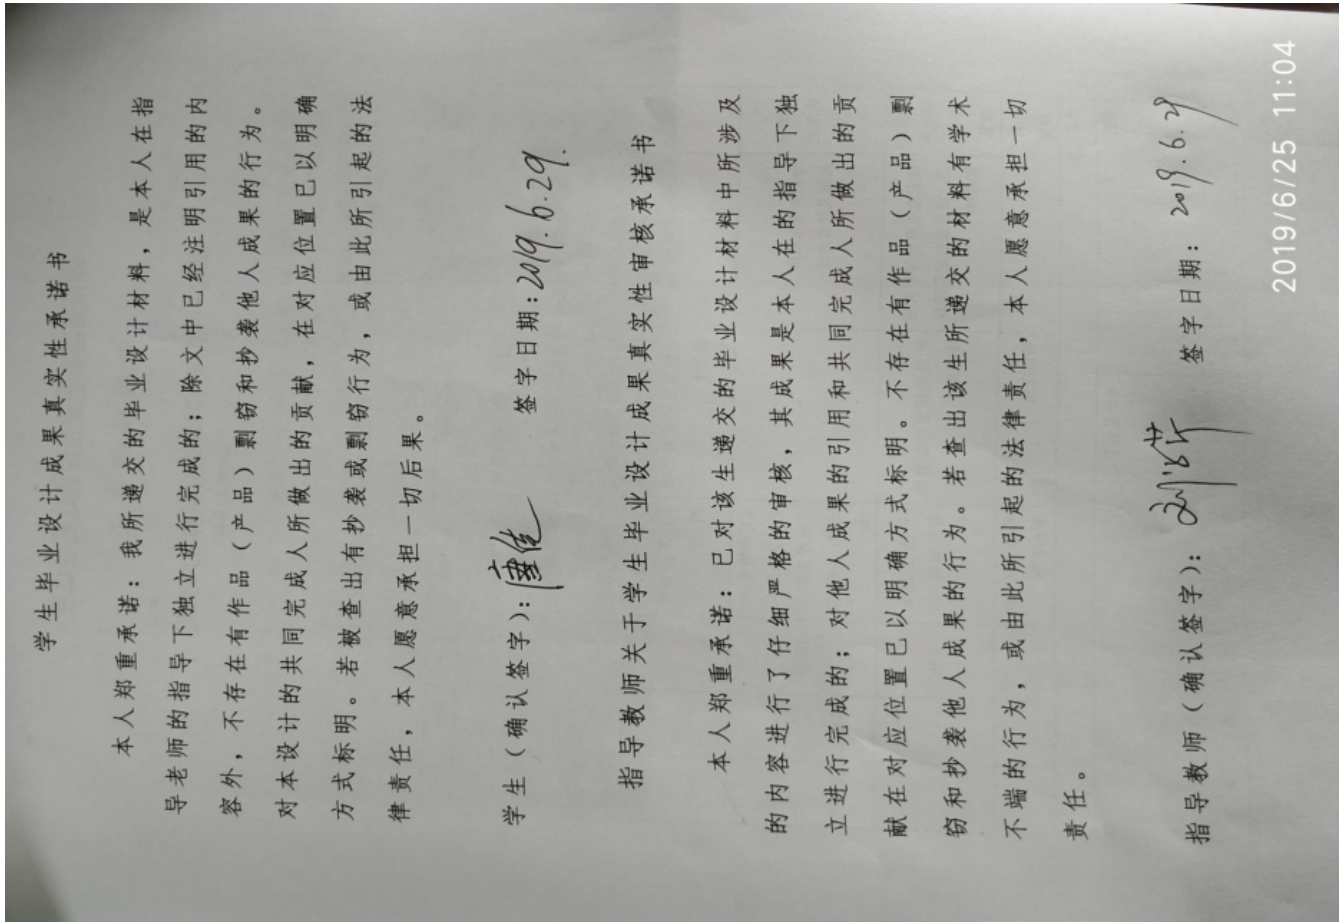 学生毕业设计成果真实性承诺书
本人郑重承诺：我所递交的毕业设计材料，是本人在指
导老师的指导下独立进行完成的；除文中已经注明引用的内
容外，不存在有作品（产品）剽窃和抄袭他人成果的行为。
对本设计的共同完成人所做出的贡献，在对应位置已以明确
方式标明。若被查出有抄袭或剽窃行为，或由此所引起的法
律责任，本人愿意承担一切后果。
学生（确认签字）：唐佳 签字日期：2019.6.29.
指导教师关于学生毕业设计成果真实性审核承诺书
本人郑重承诺：已对该生递交的毕业设计材料中所涉及
的内容进行了仔细严格的审核，其成果是本人在的指导下独
立进行完成的；对他人成果的引用和共同完成人所做出的贡
献在对应位置已以明确方式标明。不存在有作品（产品）剽
窃和抄袭他人成果的行为。若查出该生所递交的材料有学术
不端的行为，或由此所引起的法律责任，本人愿意承担一切
责任。
指导教师（确认签字）： 签字日期：2019.6.29
2019/6/25 11:04